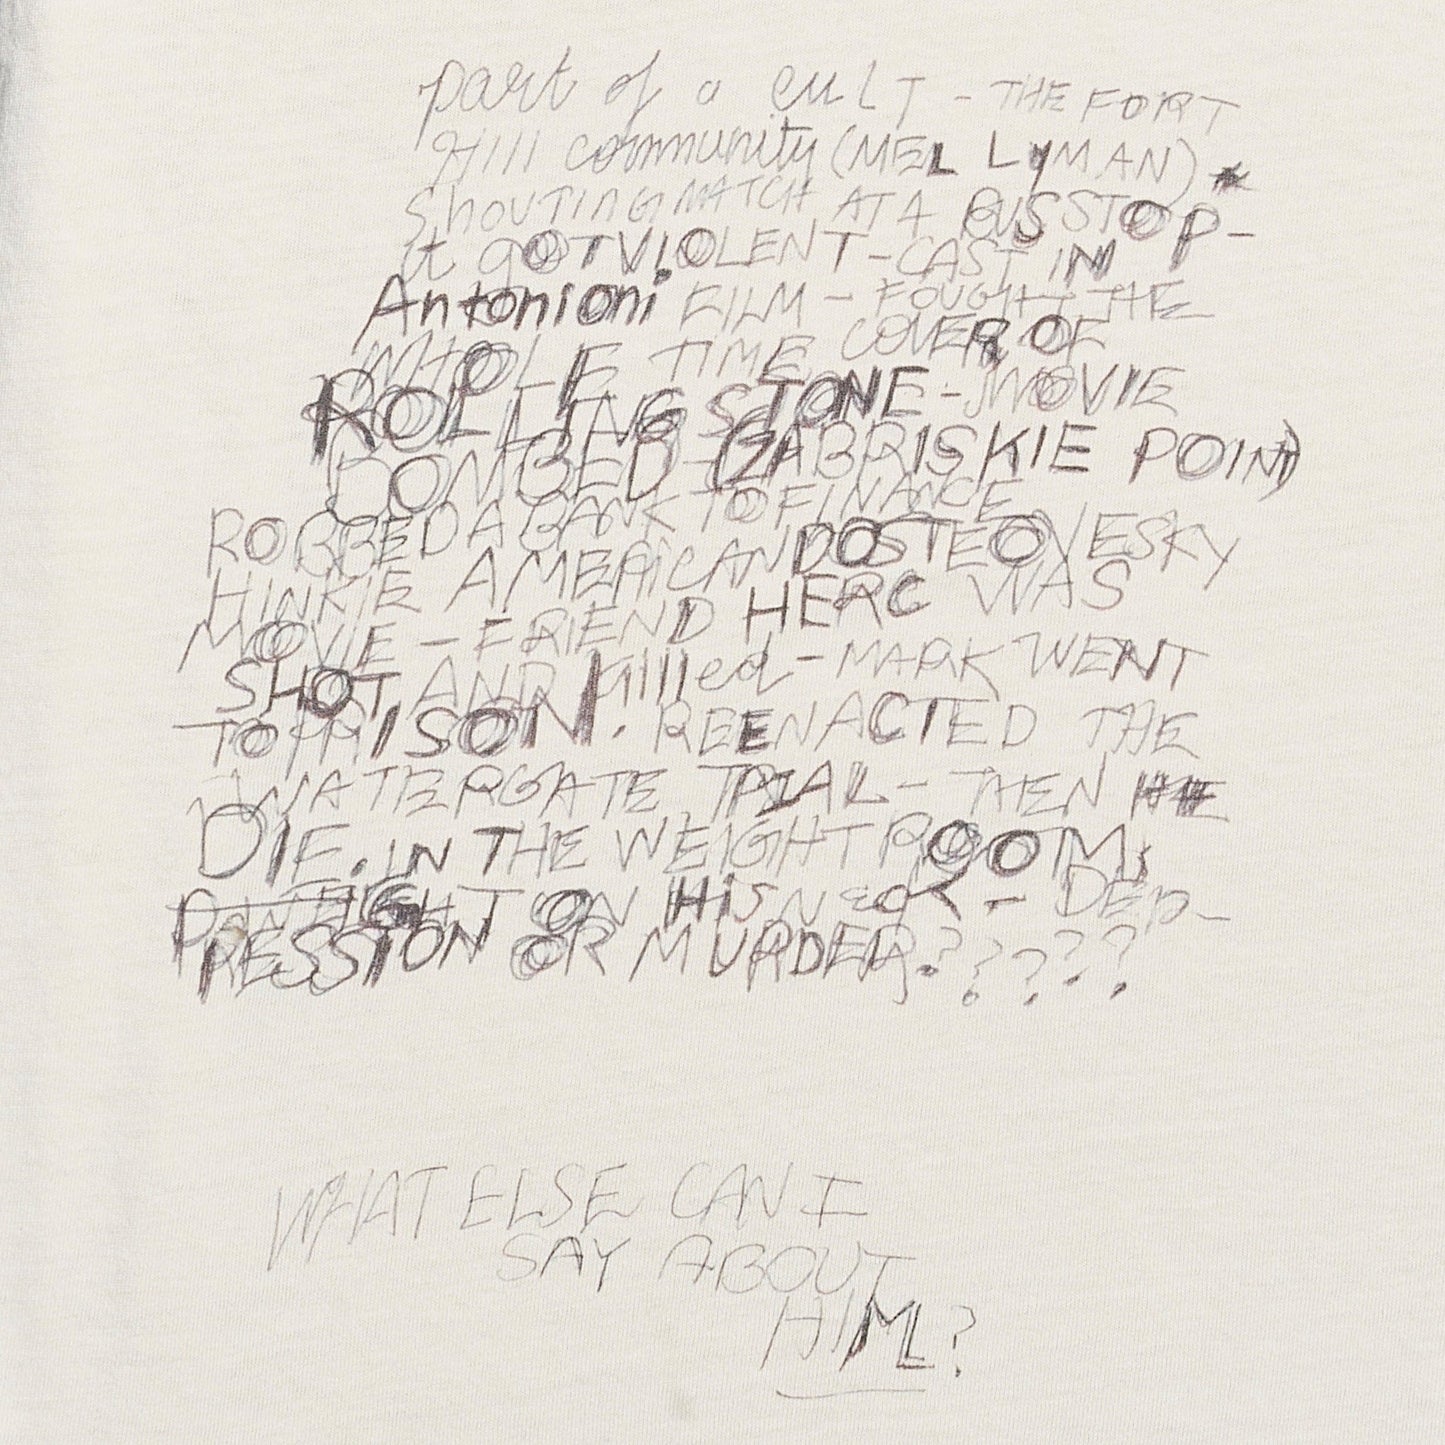 part of a cuLT - THE FORT
Hill community (MEL LyMAN) *
ShOUTING MATCH AT A BUS STOP-
it gOT VIOLENT - CAST IN
Antonioni FILM - FOUGHT THE
WHOLE TIME COVER OF
ROLLING STONE - MOVIE
BOMBED - (ZABRISKIE POINT)
ROBBED A BANK TO FINANCE
HINKIE AMERICAN DOSTEOVESKY
MOVIE - FRIEND HERC WAS
SHOT AND killed - MARK WENT
TO PRISON. REENACTED THE
WATERGATE TRIAL - THEN HE
DIE. IN THE WEIGHT ROOM,
WEIGHT ON HiS NecK - DEp-
RESSION OR MURDER?????
WHAT ELSE CAN I
SAY ABOUT
HIM?